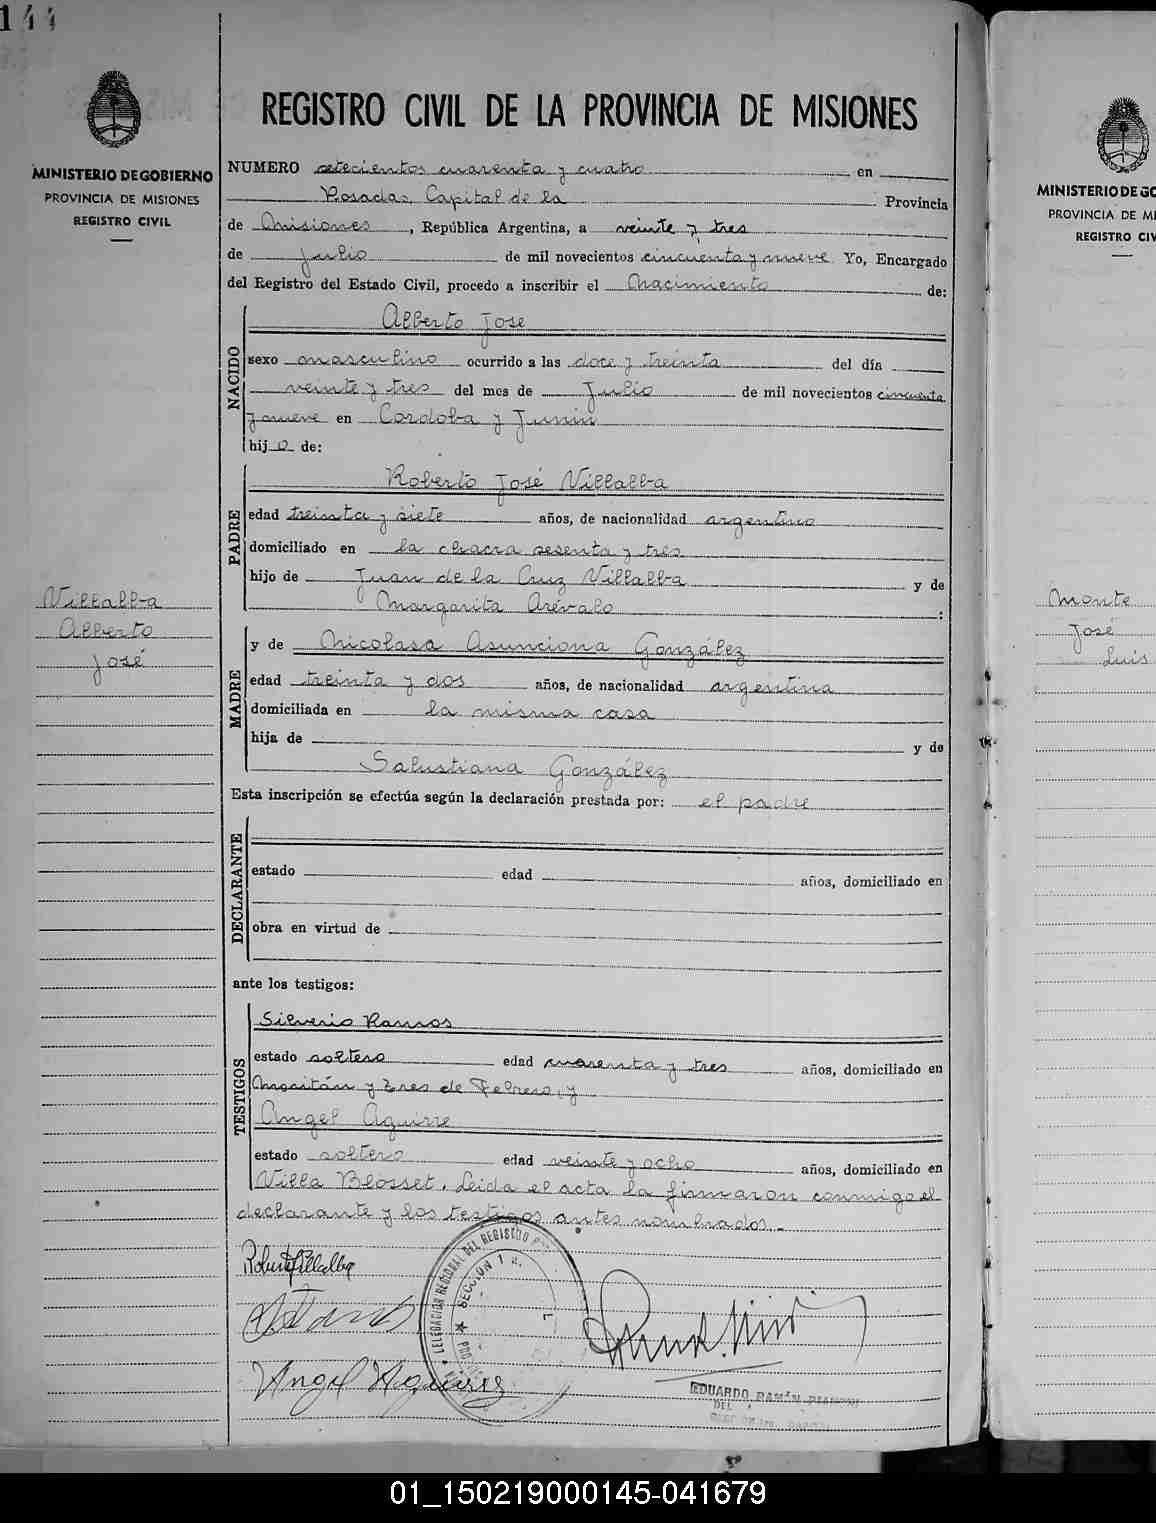 144
MINISTERIO DE GOBIERNO
PROVINCIA DE MISIONES
REGISTRO CIVIL
Villalba
Alberto
José
REGISTRO CIVIL DE LA PROVINCIA DE MISIONES
NUMERO setecientos cuarenta y cuatro en
Posadas, Capital de la Provincia
de Misiones, República Argentina, a veinte y tres
de Julio de mil novecientos cincuenta y nueve Yo, Encargado
del Registro del Estado Civil, procedo a inscribir el Nacimiento de:
NACIDO
Alberto José
sexo masculino ocurrido a las doce y treinta del día
veinte y tres del mes de Julio de mil novecientos cincuenta
y nueve en Cordoba y Junin
hijo de:
PADRE
Roberto José Villalba
edad treinta y siete años, de nacionalidad argentino
domiciliado en la chacra sesenta y tres
hijo de Juan de la Cruz Villalba y de
Margarita Arévalo :
MADRE
y de Nicolasa Asunciona González
edad treinta y dos años, de nacionalidad argentina
domiciliada en la misma casa
hija de y de
Salustiana González
Esta inscripción se efectúa según la declaración prestada por: el padre
DECLARANTE
estado edad años, domiciliado en
obra en virtud de
ante los testigos:
TESTIGOS
Silverio Ramos
estado soltero edad cuarenta y tres años, domiciliado en
y Tres de Febrero, y
Angel Aguirre
estado soltero edad veinte y ocho años, domiciliado en
Villa Blosset. Leida el acta la firmaron conmigo el
declarante y los testigos antes nombrados.-
Roberto Villalba
Angel Aguirre
DELEGACION REGIONAL DEL REGISTRO
SECCION 1ª
EDUARDO RAMÓN
DEL
MINISTERIO DE GO
PROVINCIA DE MI
REGISTRO CIV
Monte
José
Luis
01_150219000145-041679